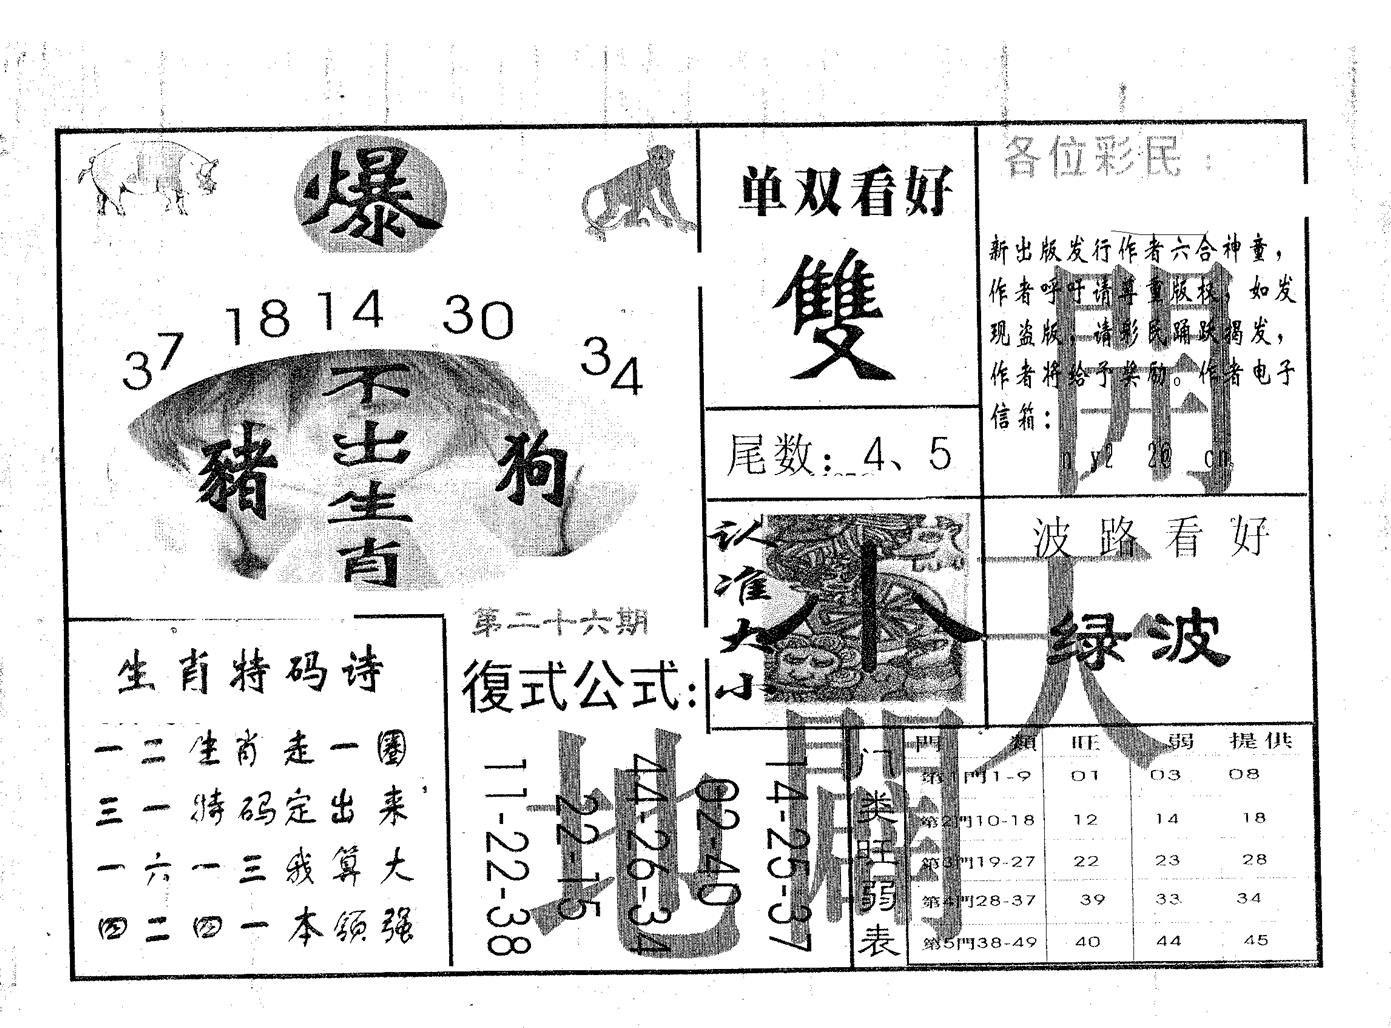 爆
37 18 14 30 34
不出生肖
豬
狗
生肖特码诗
一二生肖走一圈
三一特码定出来
一六一三我算大
四二四一本领强
第二十六期
復式公式:
11-22-38
22-15
44-26-34
02-40
14-25-37
单双看好
雙
尾数:4、5
认准大小
小
各位彩民:
新出版发行作者六合神童,
作者呼吁请尊重版权,如发
现盗版,请彩民踊跃揭发,
作者将给予奖励。作者电子
信箱:
波路看好
绿波
天
開
地
門类旺弱表
門類 旺 弱 提供
第1門1-9 01 03 08
第2門10-18 12 14 18
第3門19-27 22 23 28
第4門28-37 39 33 34
第5門38-49 40 44 45